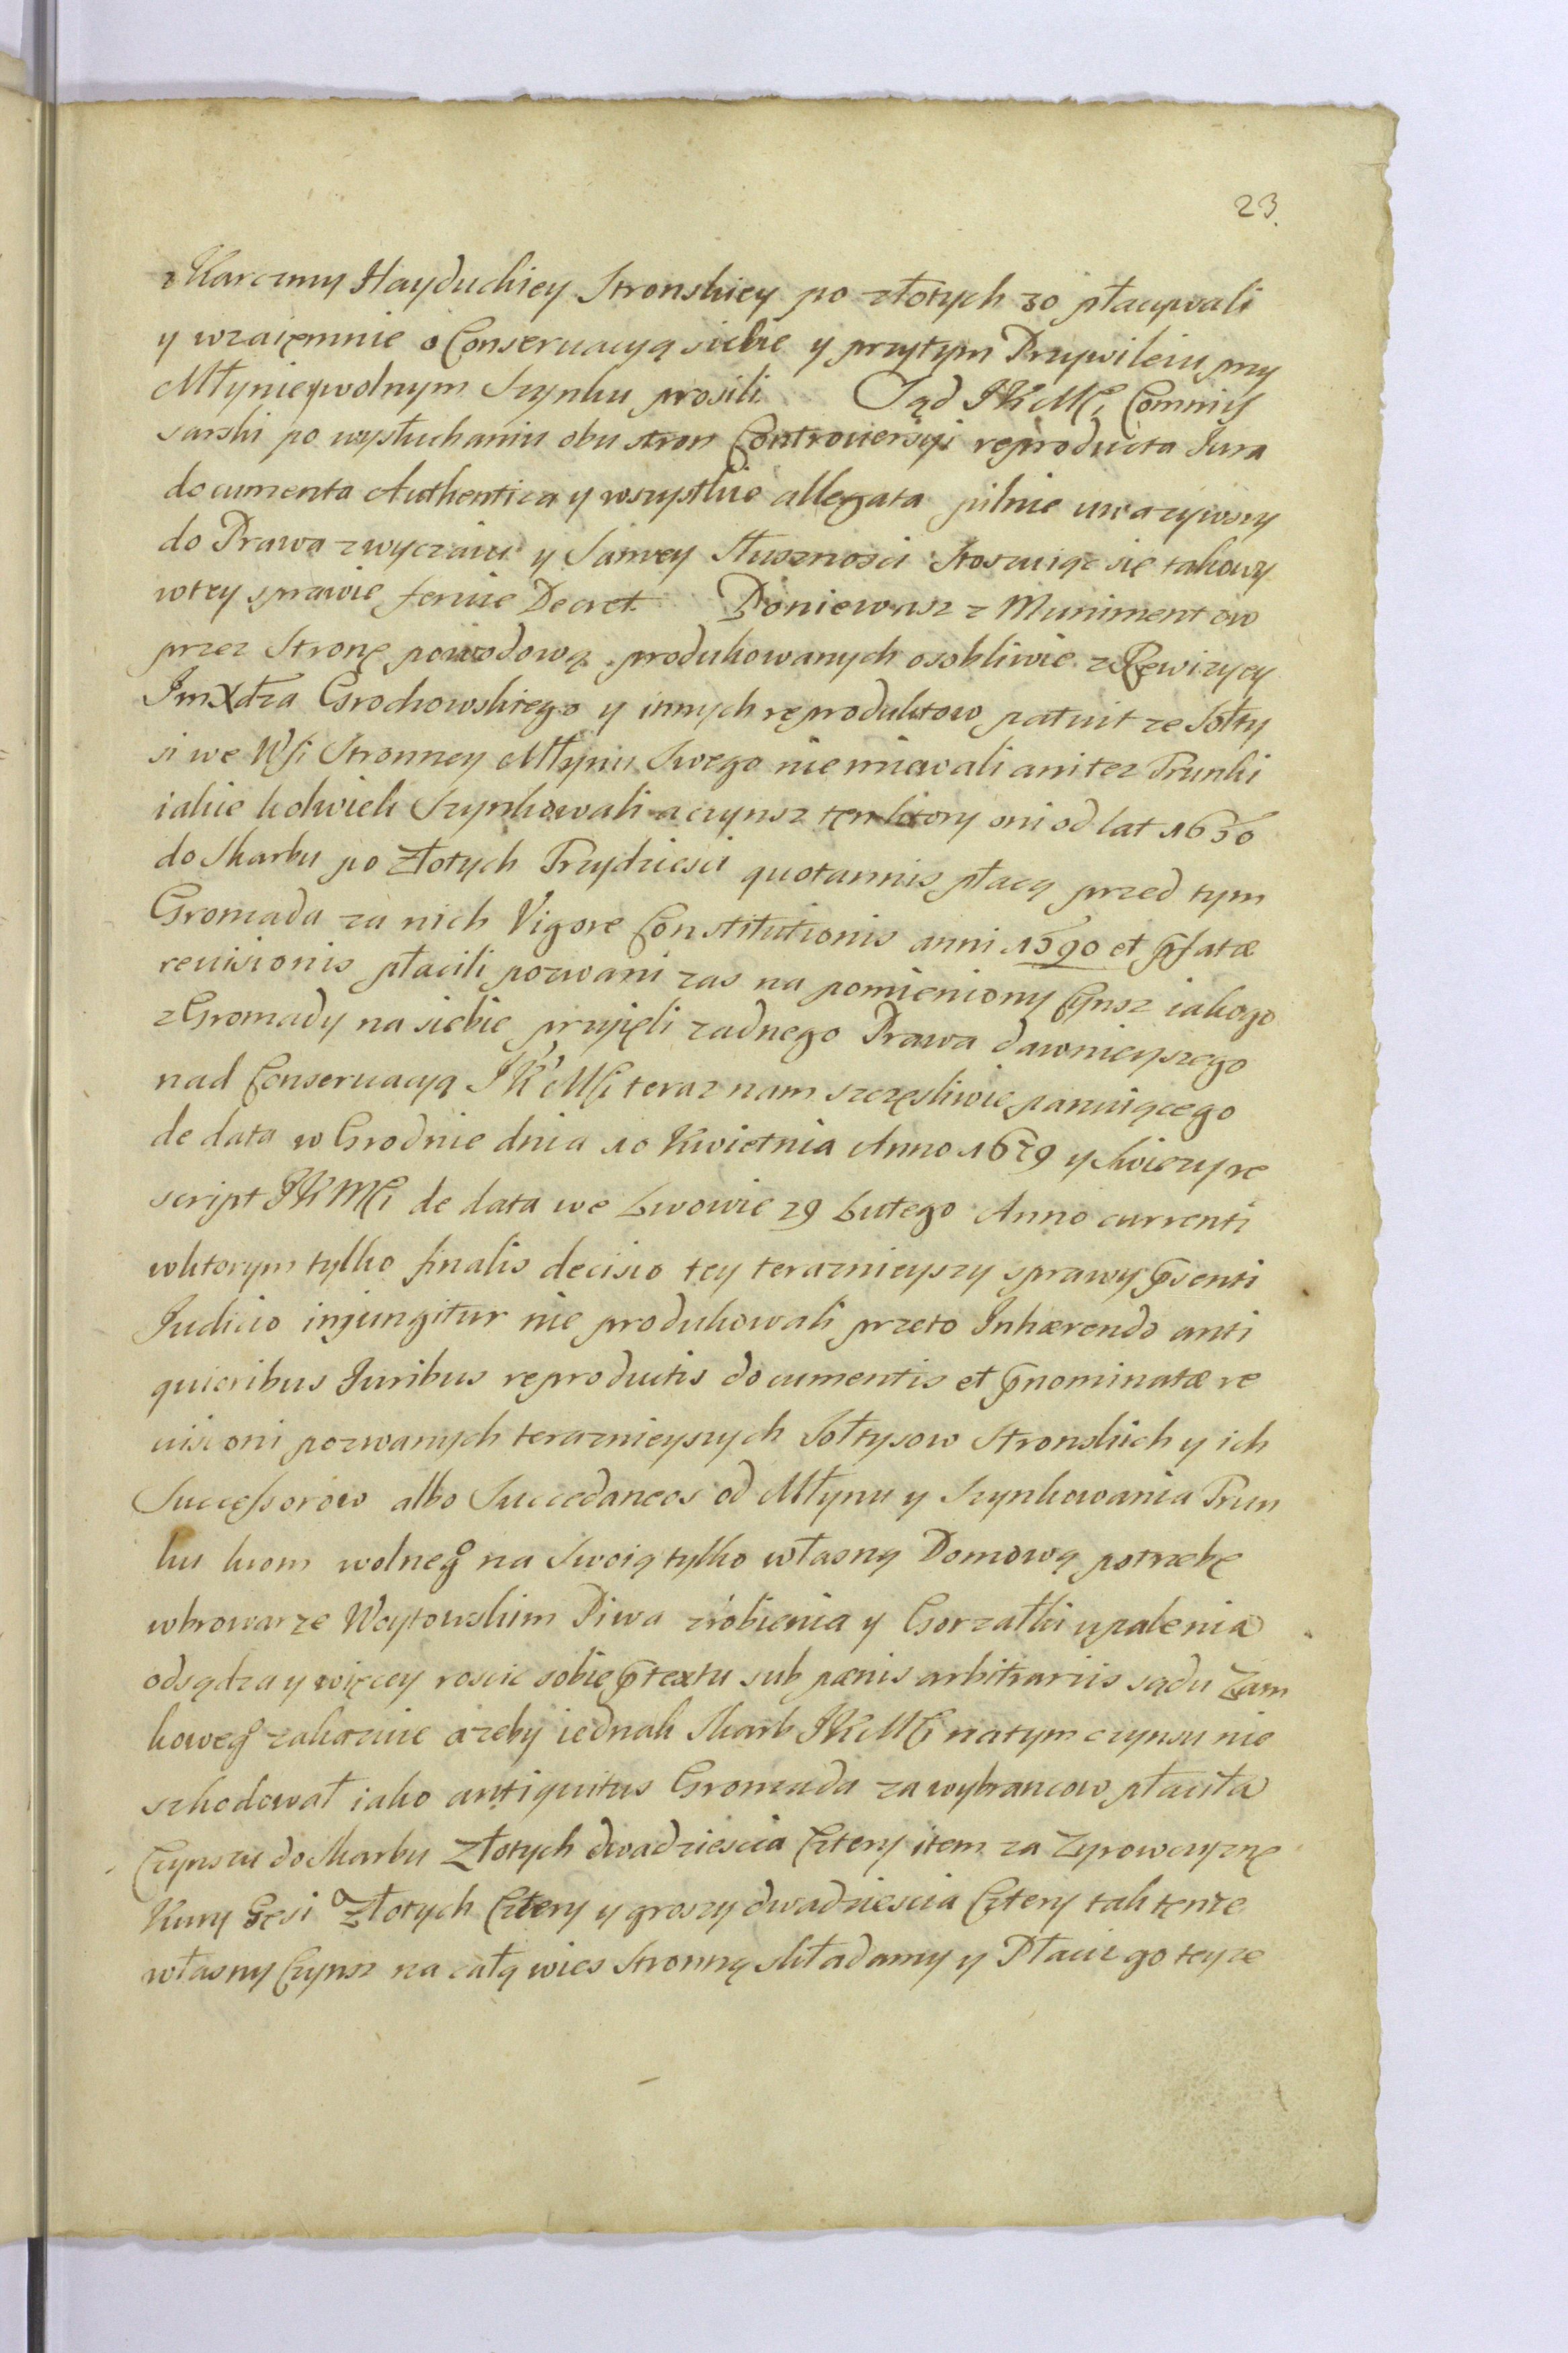 23.
z Karczmy Hayduckiey Stronskiey po złotych 30 płacywali
y wzaięmnie o Conseruacyą siebie y przytym Przywileiu przy
Młynie y wolnym Szynku prosili Sąd JKMći Commis
sarski po wysłuchaniu obu stron Controuersyi reproducta Iura
documenta Authentica y wszystkie allegata pilnie uwazywszy
do Prawa zwyczaiu y Samey Słusznosci Stosuiąc się takowy
wtey sprawie feruie Decret Poniewasz z Munimentow
przez Stronę powodową produkowanych osobliwie z Rewizycy
Jm Xdza Grochowskiego y innych reproduktow patuit ze Sołty
si we Wsi Stronney Młynu Swego niemiewali ani tez Trunki
iakie kolwiek Szynkowali a czynsz ten ktory oni od lat 1650
do Skarbu po Złotych Trzydziesci quotannis płacą przed tym
Gromada za nich Vigore Constitutionis anni 1590 et pfatæ
reuisionis płacili pozwani zas na pomieniony Czynsz iakogo
z Gromady na siebie przyięli zadnego Prawa dawnieyszego
nad Conseruacyą JKMći teraz nam szczęsliwie panuiącego
de data w Grodnie dnia 10 Kwietnia Anno 1679 y swiezy re
script JKMći de data we Lwowie 29 Lutego Anno currenti
wktorym tylko finalis decisio tey teraznieyszy sprawy psenti
Iudicio injungitur nie produkowali przeto Inhærendo anti
quioribus Iuribus reproductis documentis et pnominatæ re
uisioni pozwanych teraznieyszych Sołtysow Stronskich y ich
Successorów albo Succedaneos od Młynu y Szynkowania Trun
ku kiom wolneg na Swoią tylko własną Domową potrzebę
wbrowarze Woytowskim Piwa zrobienia y Gorzałki upalenia
odsądza y więcey roscic sobie ptextu sub pænis arbitrariis sądu Zam
koweg zakazuie azeby iednak Skarb JKMći natym czynszu nie
szkodował iako antiquitus Gromada za wybrancow płaciła
Czynszu do Skarbu Złotych dwadziescia Cztery item za Zyrowczyznę
Kury Gęsi Złotych Cztery y groszy dwadziescia Cztery tak tenze
własny Czynsz na całą wies Stronną składamy y Płacic go teyze